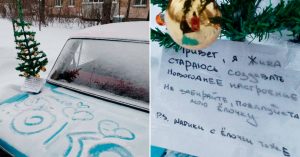 Привет, я Жива
стараюсь создать
новогоднее настроение
Не забирайте, пожалуйста
мою ёлочку
P.S. Шарики с ёлочки тоже